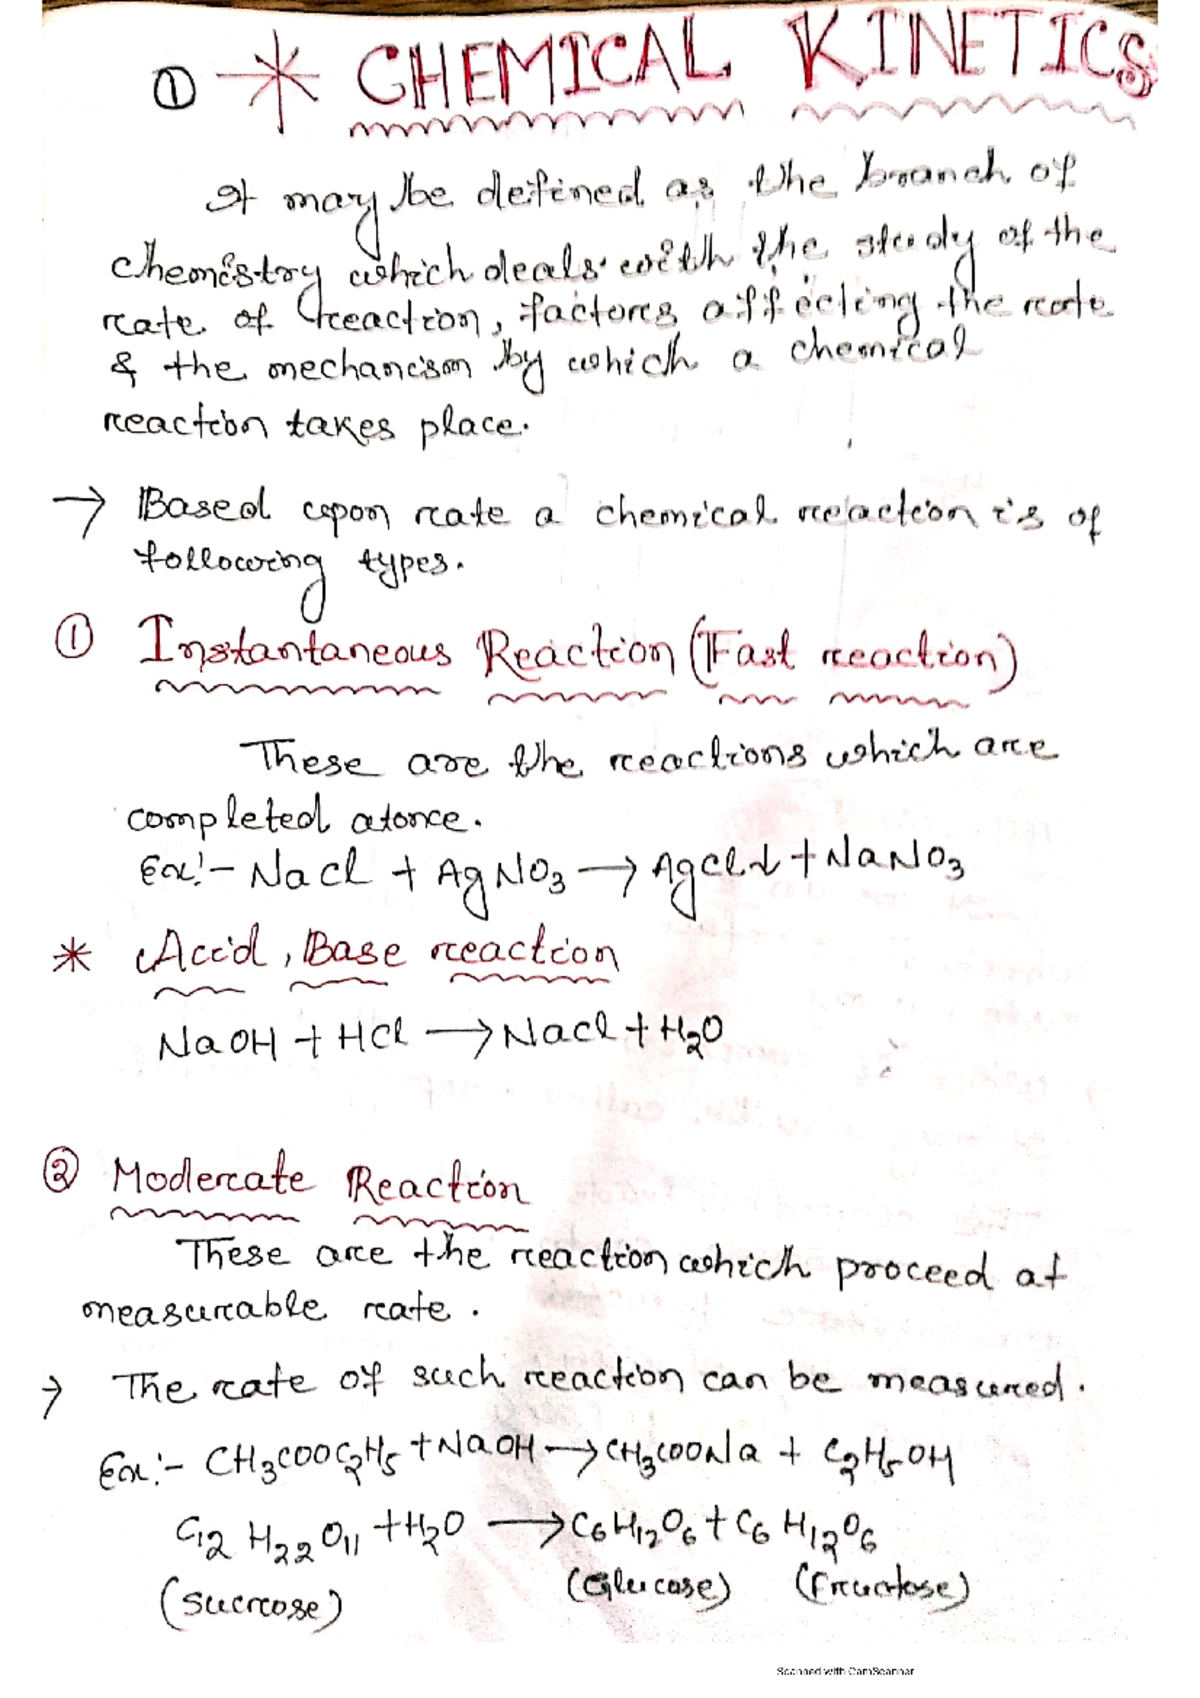 ① * CHEMICAL KINETICS
It may be defined as the branch of
chemistry which deals with the study of the
rate of reaction, factors affecting the rate
& the mechanism by which a chemical
reaction takes place.
→ Based upon rate a chemical reaction is of
following types.
① Instantaneous Reaction (Fast reaction)
These are the reactions which are
completed atonce.
Ex:- NaCl + AgNO₃ → AgCl↓ + NaNO₃
* Acid, Base reaction
NaOH + HCl → NaCl + H₂O
② Moderate Reaction
These are the reaction which proceed at
measurable rate.
→ The rate of such reaction can be measured.
Ex:- CH₃COOC₂H₅ + NaOH → CH₃COONa + C₂H₅OH
C₁₂H₂₂O₁₁ + H₂O → C₆H₁₂O₆ + C₆H₁₂O₆
(Sucrose) (Glucose) (Fructose)
Scanned with CamScanner